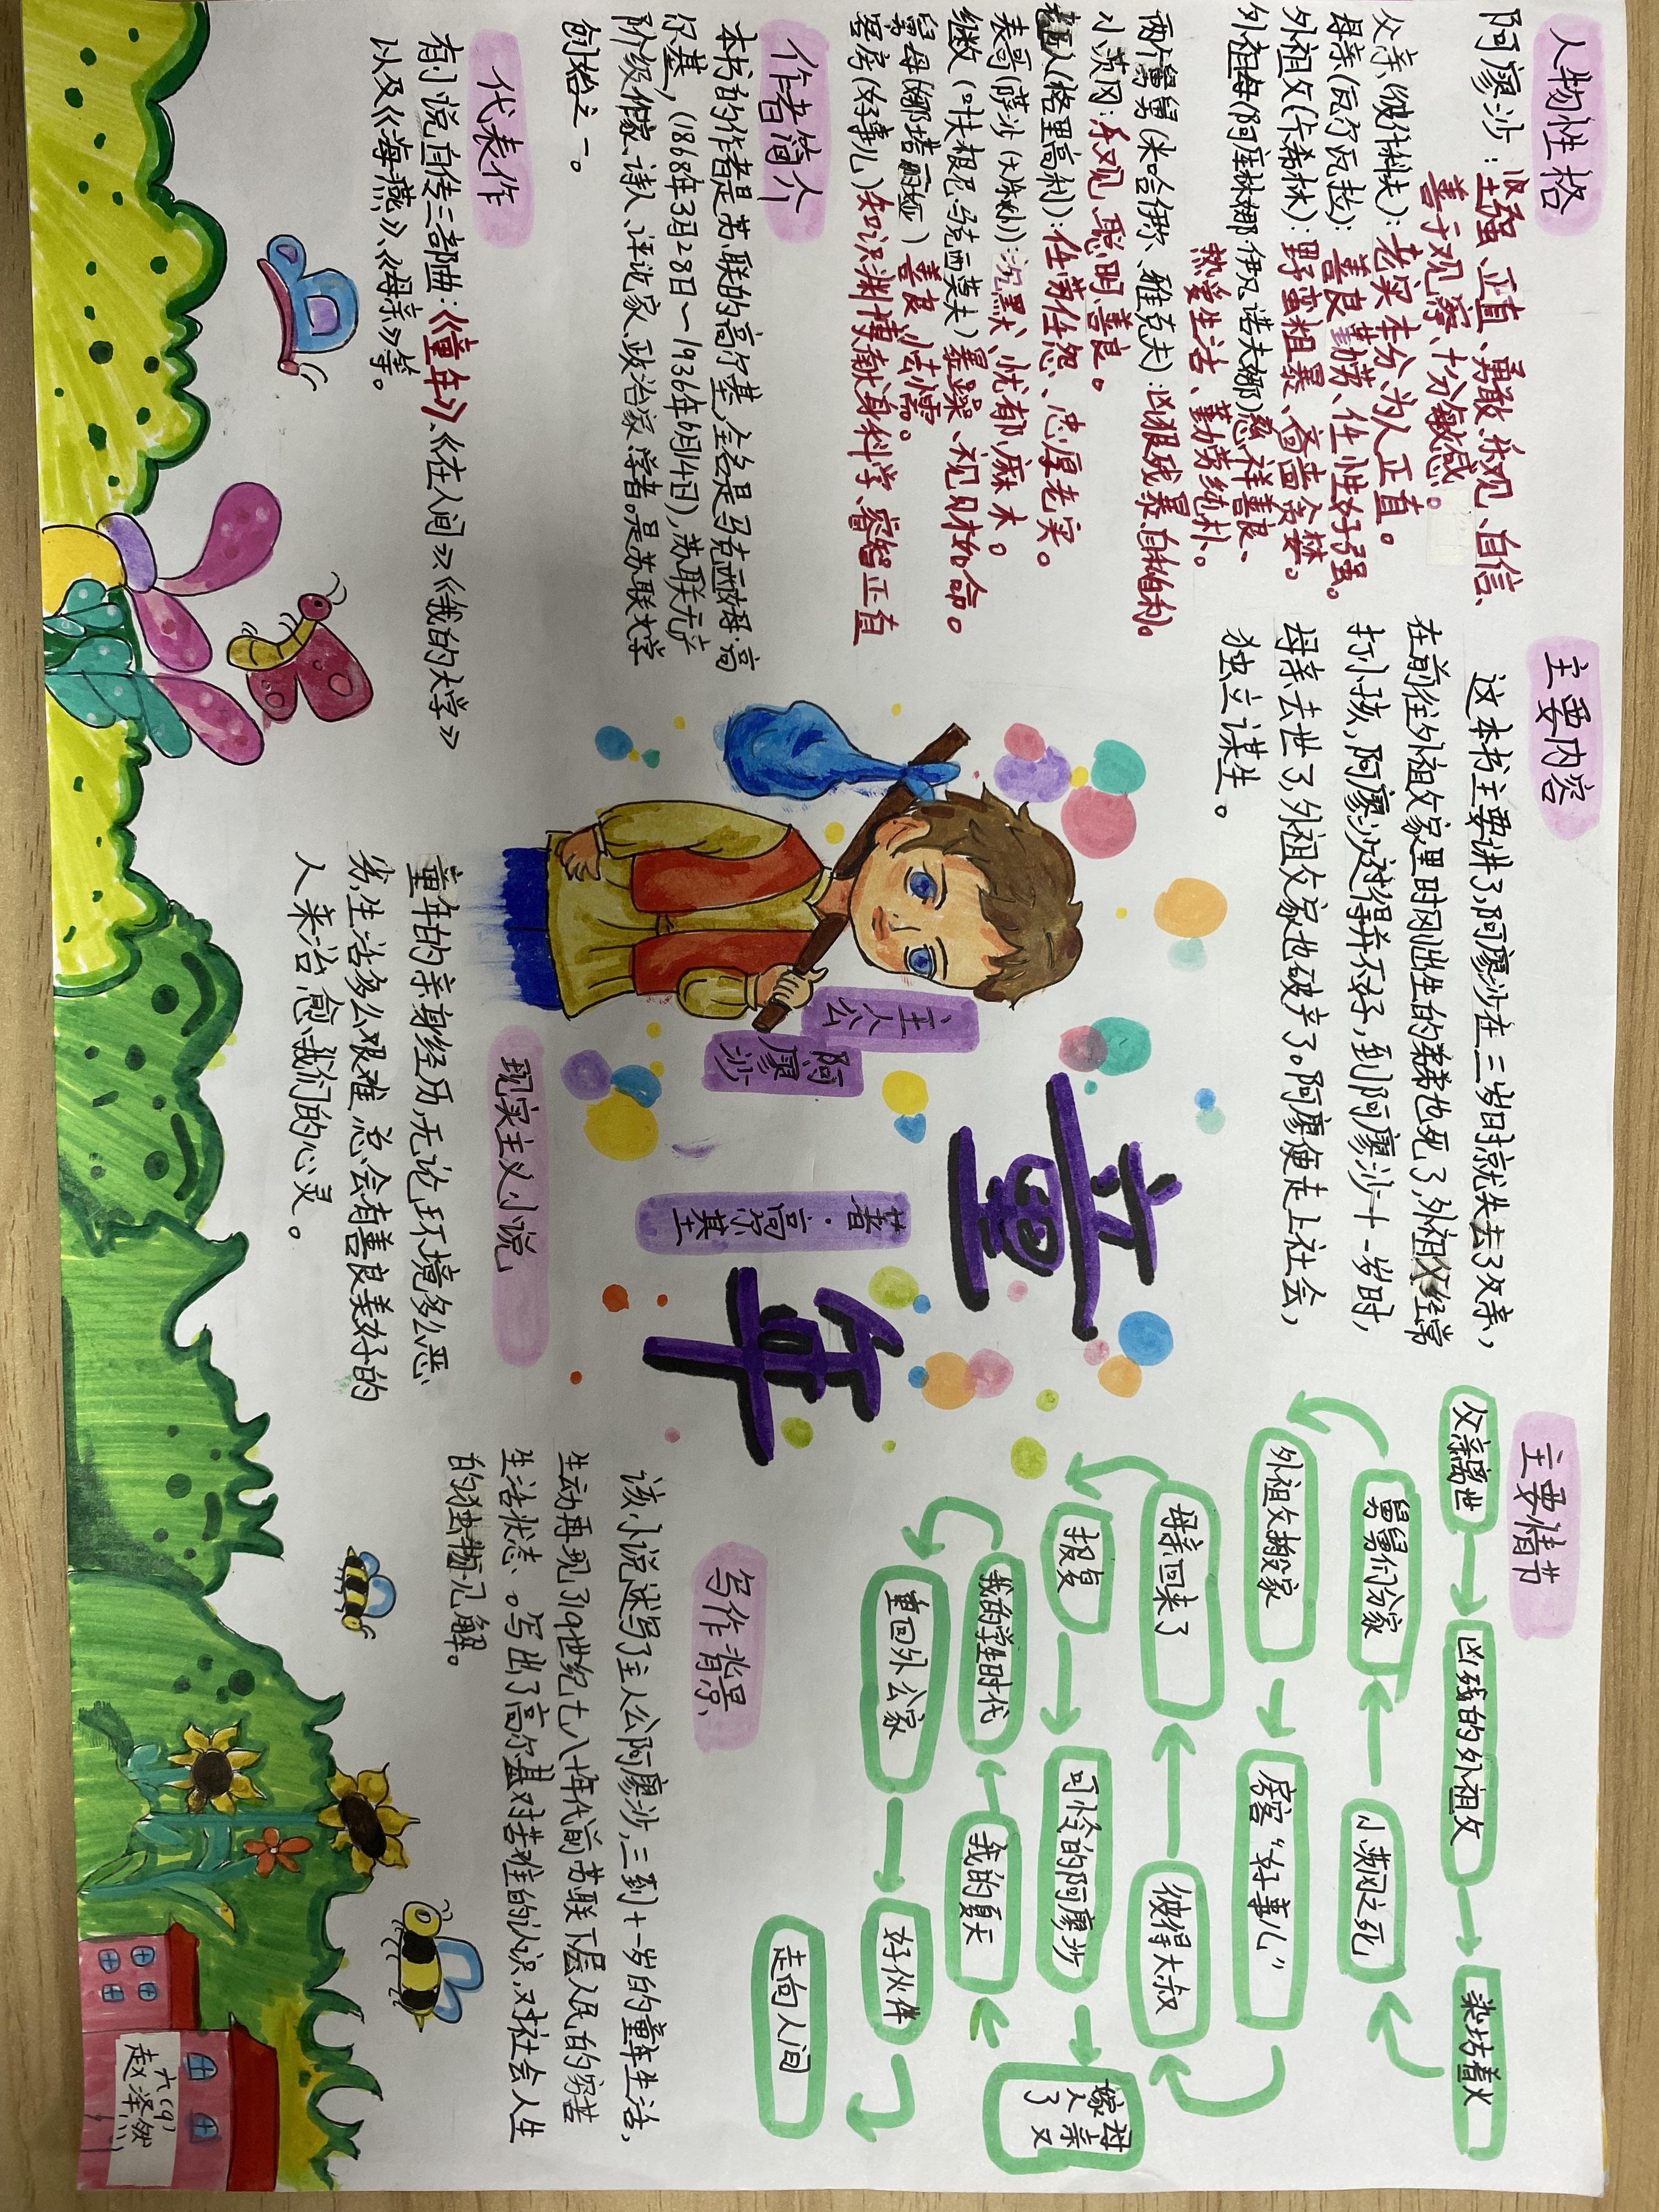 人物性格
阿廖沙：坚强、正直、勇敢、乐观、自信、
善于观察、十分敏感。
父亲(彼什科夫)：老实本分、为人正直。
母亲(瓦尔瓦拉)：善良、勤劳、任性好强。
外祖父(卡希林)：野蛮粗暴、吝啬贪婪。
外祖母(阿库林娜·伊凡·诺夫娜)慈祥善良、
热爱生活、勤劳纯朴。
两个舅舅(米哈伊尔、雅克夫)：凶狠残暴、自私自利。
小茨冈：乐观、聪明、善良。
老工人(格里高利)：任劳任怨、忠厚老实。
表哥(萨沙)：沉默、忧郁、麻木。
继父(叶夫根尼·马克西莫夫)暴躁、视财如命。
舅母(娜塔丽娅)善良、怯懦。
客房(好事儿)知识渊博、献身科学、睿智正直
作者简介
本书的作者是苏联的高尔基，全名是马克西姆·高
尔基，(1868年3月28日—1936年6月14日)，苏联无产
阶级作家、诗人、评论家、政治家、学者。是苏联文学
创始之一。
代表作
有小说自传三部曲：《童年》、《在人间》《我的大学》
以及《海燕》、《母亲》等。
主要内容
这本书主要讲了，阿廖沙在三岁时就失去了父亲，
在前往外祖父家里时刚出生的弟弟也死了，外祖父经常
打小孩，阿廖沙过得并不好，到阿廖沙十一岁时，
母亲去世了，外祖父家也破产了。阿廖便走上社会，
独立谋生。
主人公
阿廖沙
童年
著·高尔基
现实主义小说
童年的亲身经历，无论环境多么恶
劣，生活多么艰难，总会有善良美好的
人来治愈我们的心灵。
主要情节
父亲离世
凶残的外祖父
染坊着火
舅舅们分家
小茨冈之死
外祖父搬家
房客“好事儿”
母亲回来了
彼得大叔
报复
可怜的阿廖沙
母亲又嫁人了
我的学生时代
我的夏天
重回外公家
好伙伴
走向人间
写作背景
该小说述写了主人公阿廖沙，三到十一岁的童年生活，
生动再现了19世纪七八十年代前苏联下层人民的穷苦
生活状态。写出了高尔基对苦难的认识，对社会人生
的独物见解。
六(9)
赵泽然